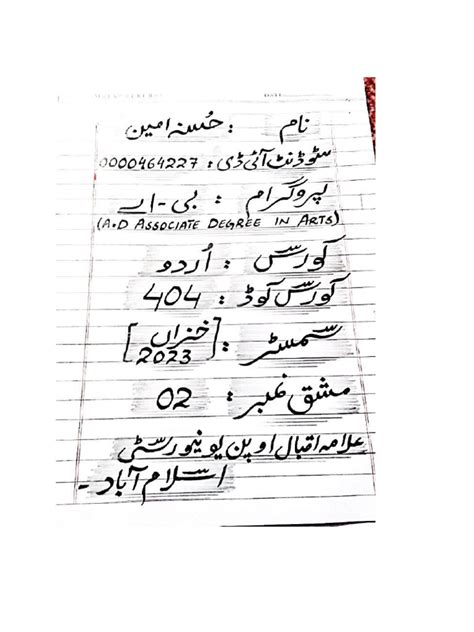 نام : حُسنہ امین
سٹوڈنٹ آئی ڈی : 0000464227
پروگرام : بی-اے
(A.D ASSOCIATE DEGREE IN ARTS)
کورس : اُردو
کورس کوڈ : 404
سمسٹر : [خزاں 2023]
مشق نمبر : 02
علامہ اقبال اوپن یونیورسٹی
اسلام آباد -